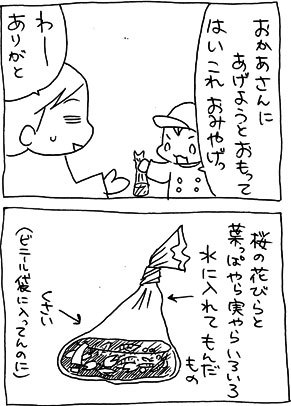 おかあさんに
あげようとおもって
はいこれおみやげっ
わー
ありがと
桜の花びらと
葉っぱやら実やらいろいろ
水に入れてもんだ
もの
くさい
(ビニール袋に入ってんのに)